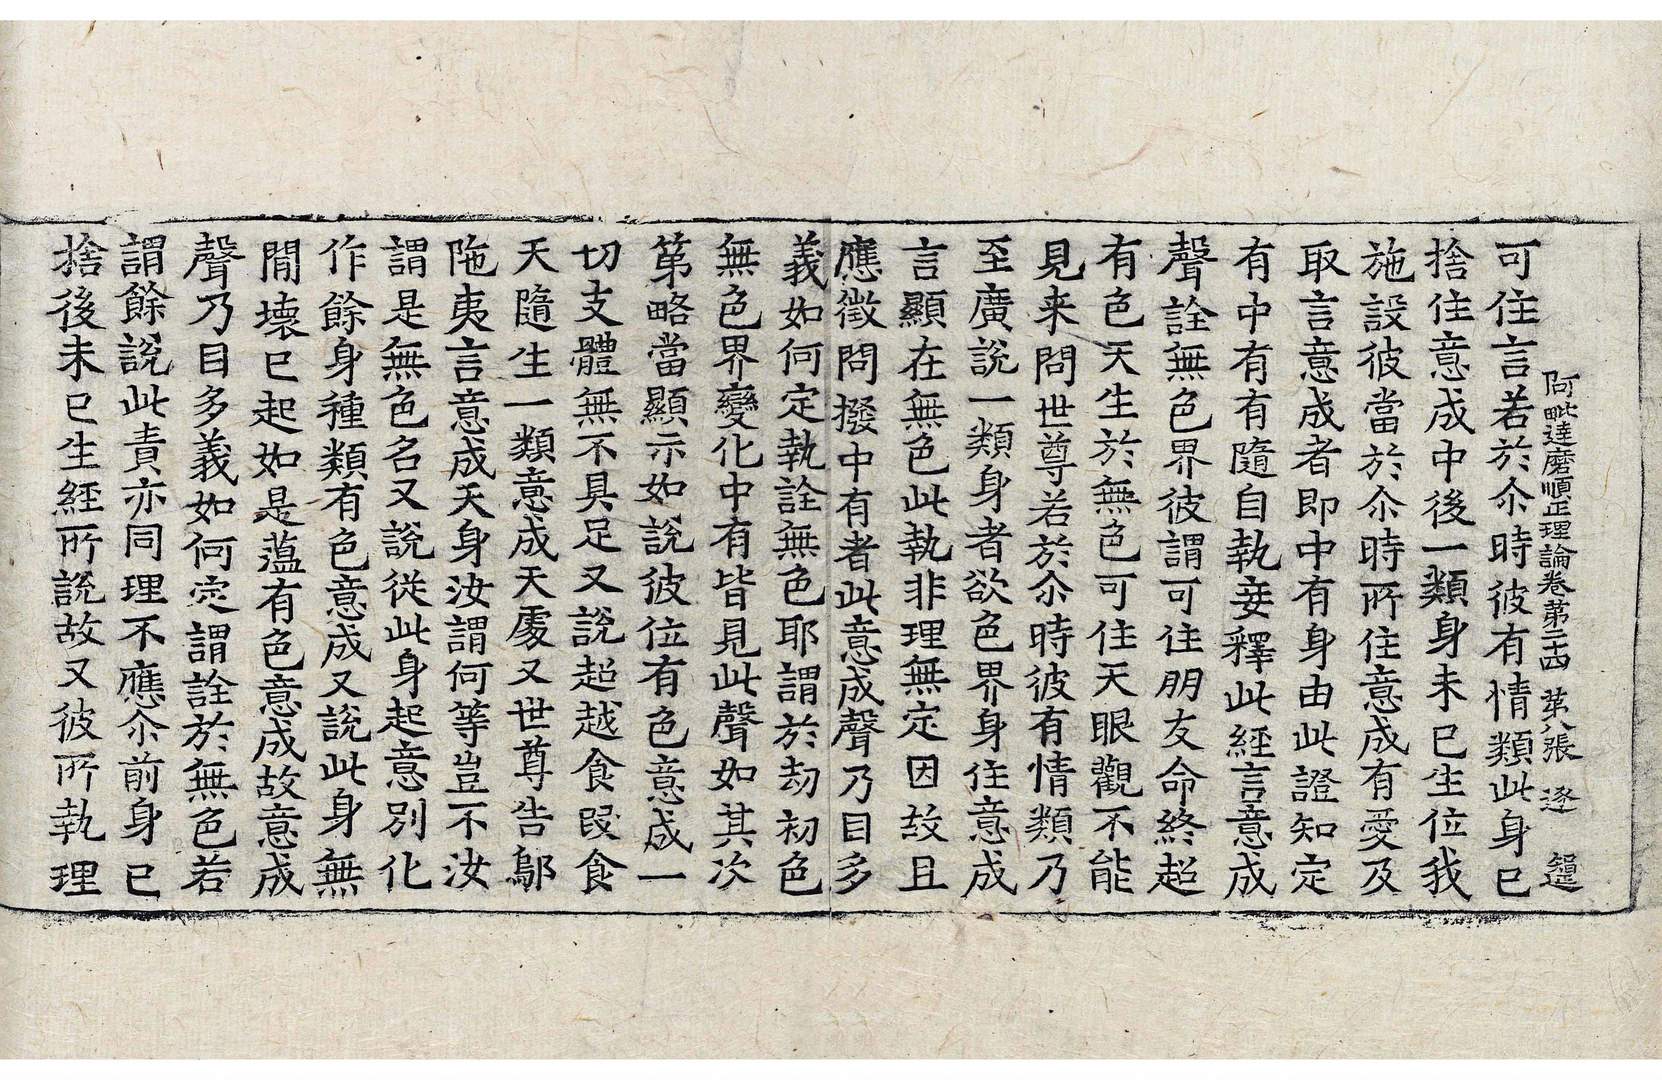 阿毗達磨順正理論卷第二十四 第八張 逐
可住言若於尒時彼有情類此身已
捨住意成中後一類身未已生位我
施設彼當於尒時所住意成有愛及
取言意成者即中有身由此證知定
有中有有隨自執妄釋此經言意成
聲詮無色界彼謂可住朋友命終超
有色天生於無色可住天眼觀不能
見来問世尊若於尒時彼有情類乃
至廣說一類身者欲色界身住意成
言顯在無色此執非理無定因故且
應徵問撥中有者此意成聲乃目多
義如何定執詮無色耶謂於劫初色
無色界變化中有皆見此聲如其次
第略當顯示如說彼位有色意成一
切支體無不具足又說超越食段食
天隨生一類意成天處又世尊告鄔
陁夷言意成天身汝謂何等豈不汝
謂是無色名又說從此身起意別化
作餘身種類有色意成又說此身無
閒壞已起如是蘊有色意成故意成
聲乃目多義如何定謂詮於無色若
謂餘說此責亦同理不應尒前身已
捨後未已生經所說故又彼所執理